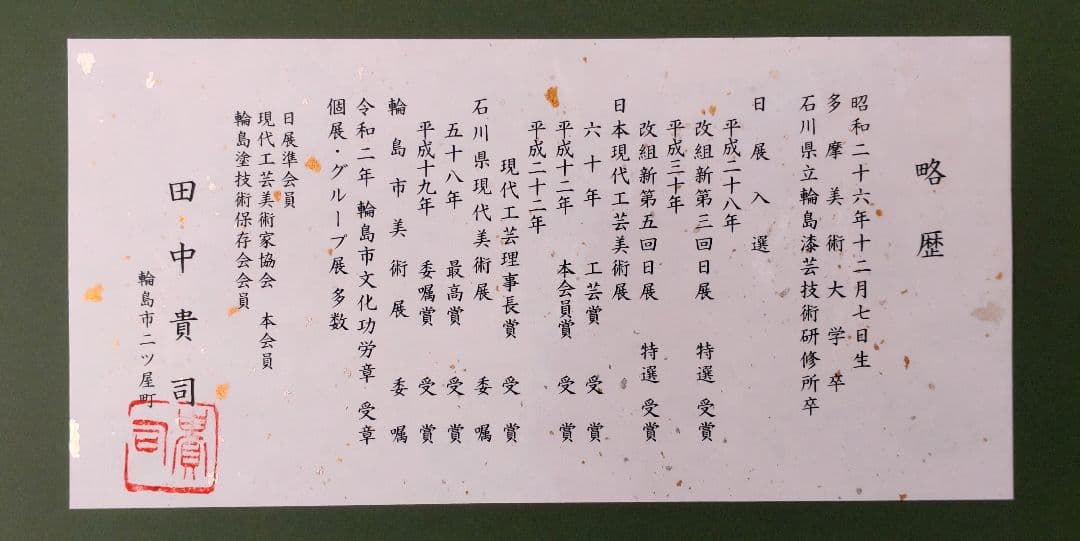 略歴
昭和二十六年十二月七日生
多摩美術大学卒
石川県立輪島漆芸技術研修所卒
日展入選
平成二十八年
改組新第三回日展 特選 受賞
平成三十年
改組新第五回日展 特選 受賞
日本現代工芸美術展
六十年 工芸賞 受賞
平成十二年 本会員賞 受賞
平成二十二年
現代工芸理事長賞 受賞
石川県現代美術展 委嘱
五十八年 最高賞 受賞
平成十九年 委嘱賞 受賞
輪島市美術展 委嘱
令和二年 輪島市文化功労章 受章
個展・グループ展 多数
日展準会員
現代工芸美術家協会 本会員
輪島塗技術保存会会員
田中貴司
輪島市二ツ屋町
貴司